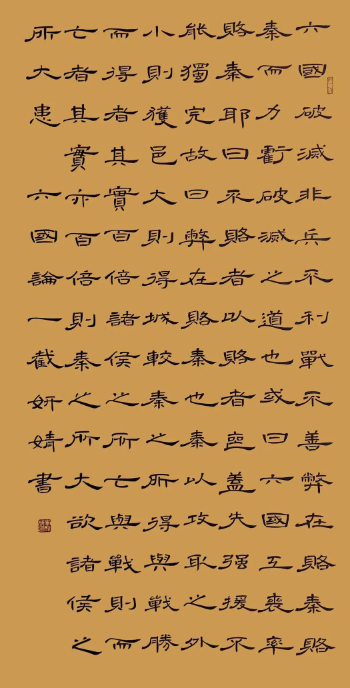 六國破滅非兵不利戰不善弊在賂秦賂
秦而力虧破滅之道也或曰六國互喪率
賂秦耶曰不賂者以賂者喪蓋失强援不
能獨完故曰弊在賂秦也秦以攻取之外
小則獲邑大則得城較秦之所得與戰勝
而得者其實百倍諸侯之所亡與戰則而
亡者其實亦百倍則秦之所大欲諸侯之
所大患 六國論一截妍婧書